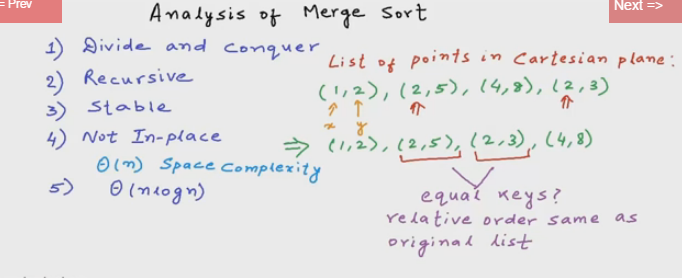 = Prev
Next =>
Analysis of Merge Sort
1) Divide and Conquer
2) Recursive
3) Stable
4) Not In-place
Θ(n) Space Complexity
5) Θ(nlogn)
List of points in Cartesian plane:
(1,2), (2,5), (4,8), (2,3)
x y
⇒ (1,2), (2,5), (2,3), (4,8)
equal keys?
relative order same as
original list